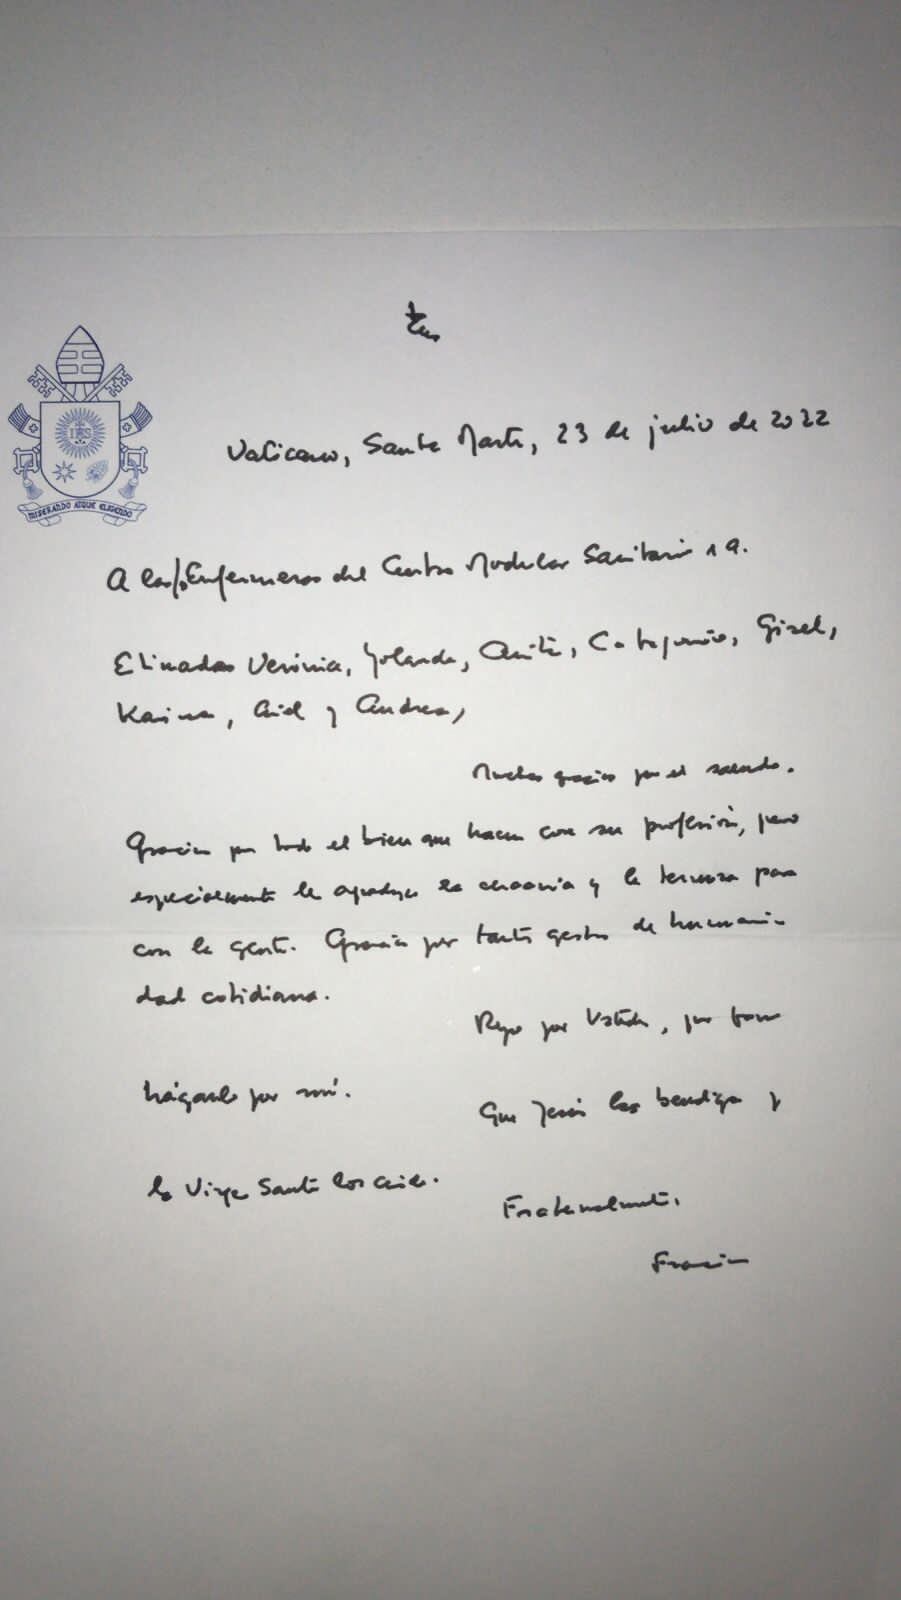 MISERANDO ATQUE ELIGENDO
IHS
Vaticano, Santa Marta, 23 de julio de 2022
A las/os Enfermeros del Centro Modular Sanitario 19.
Estimadas Verónica, Yolanda, Anita, Gisel,
Karina, y Andrea,
Muchas gracias por el saludo.
Gracias por todo el bien que hacen con su profesión, pero
especialmente les agradezco la cercanía y la ternura para
con la gente. Gracias por tantos gestos de humani-
dad cotidiana.
Rezo por Ustedes, por favor
háganlo por mí.
Que Jesús los bendiga y
la Virgen Santa los cuide.
Fraternalmente,
Francisco